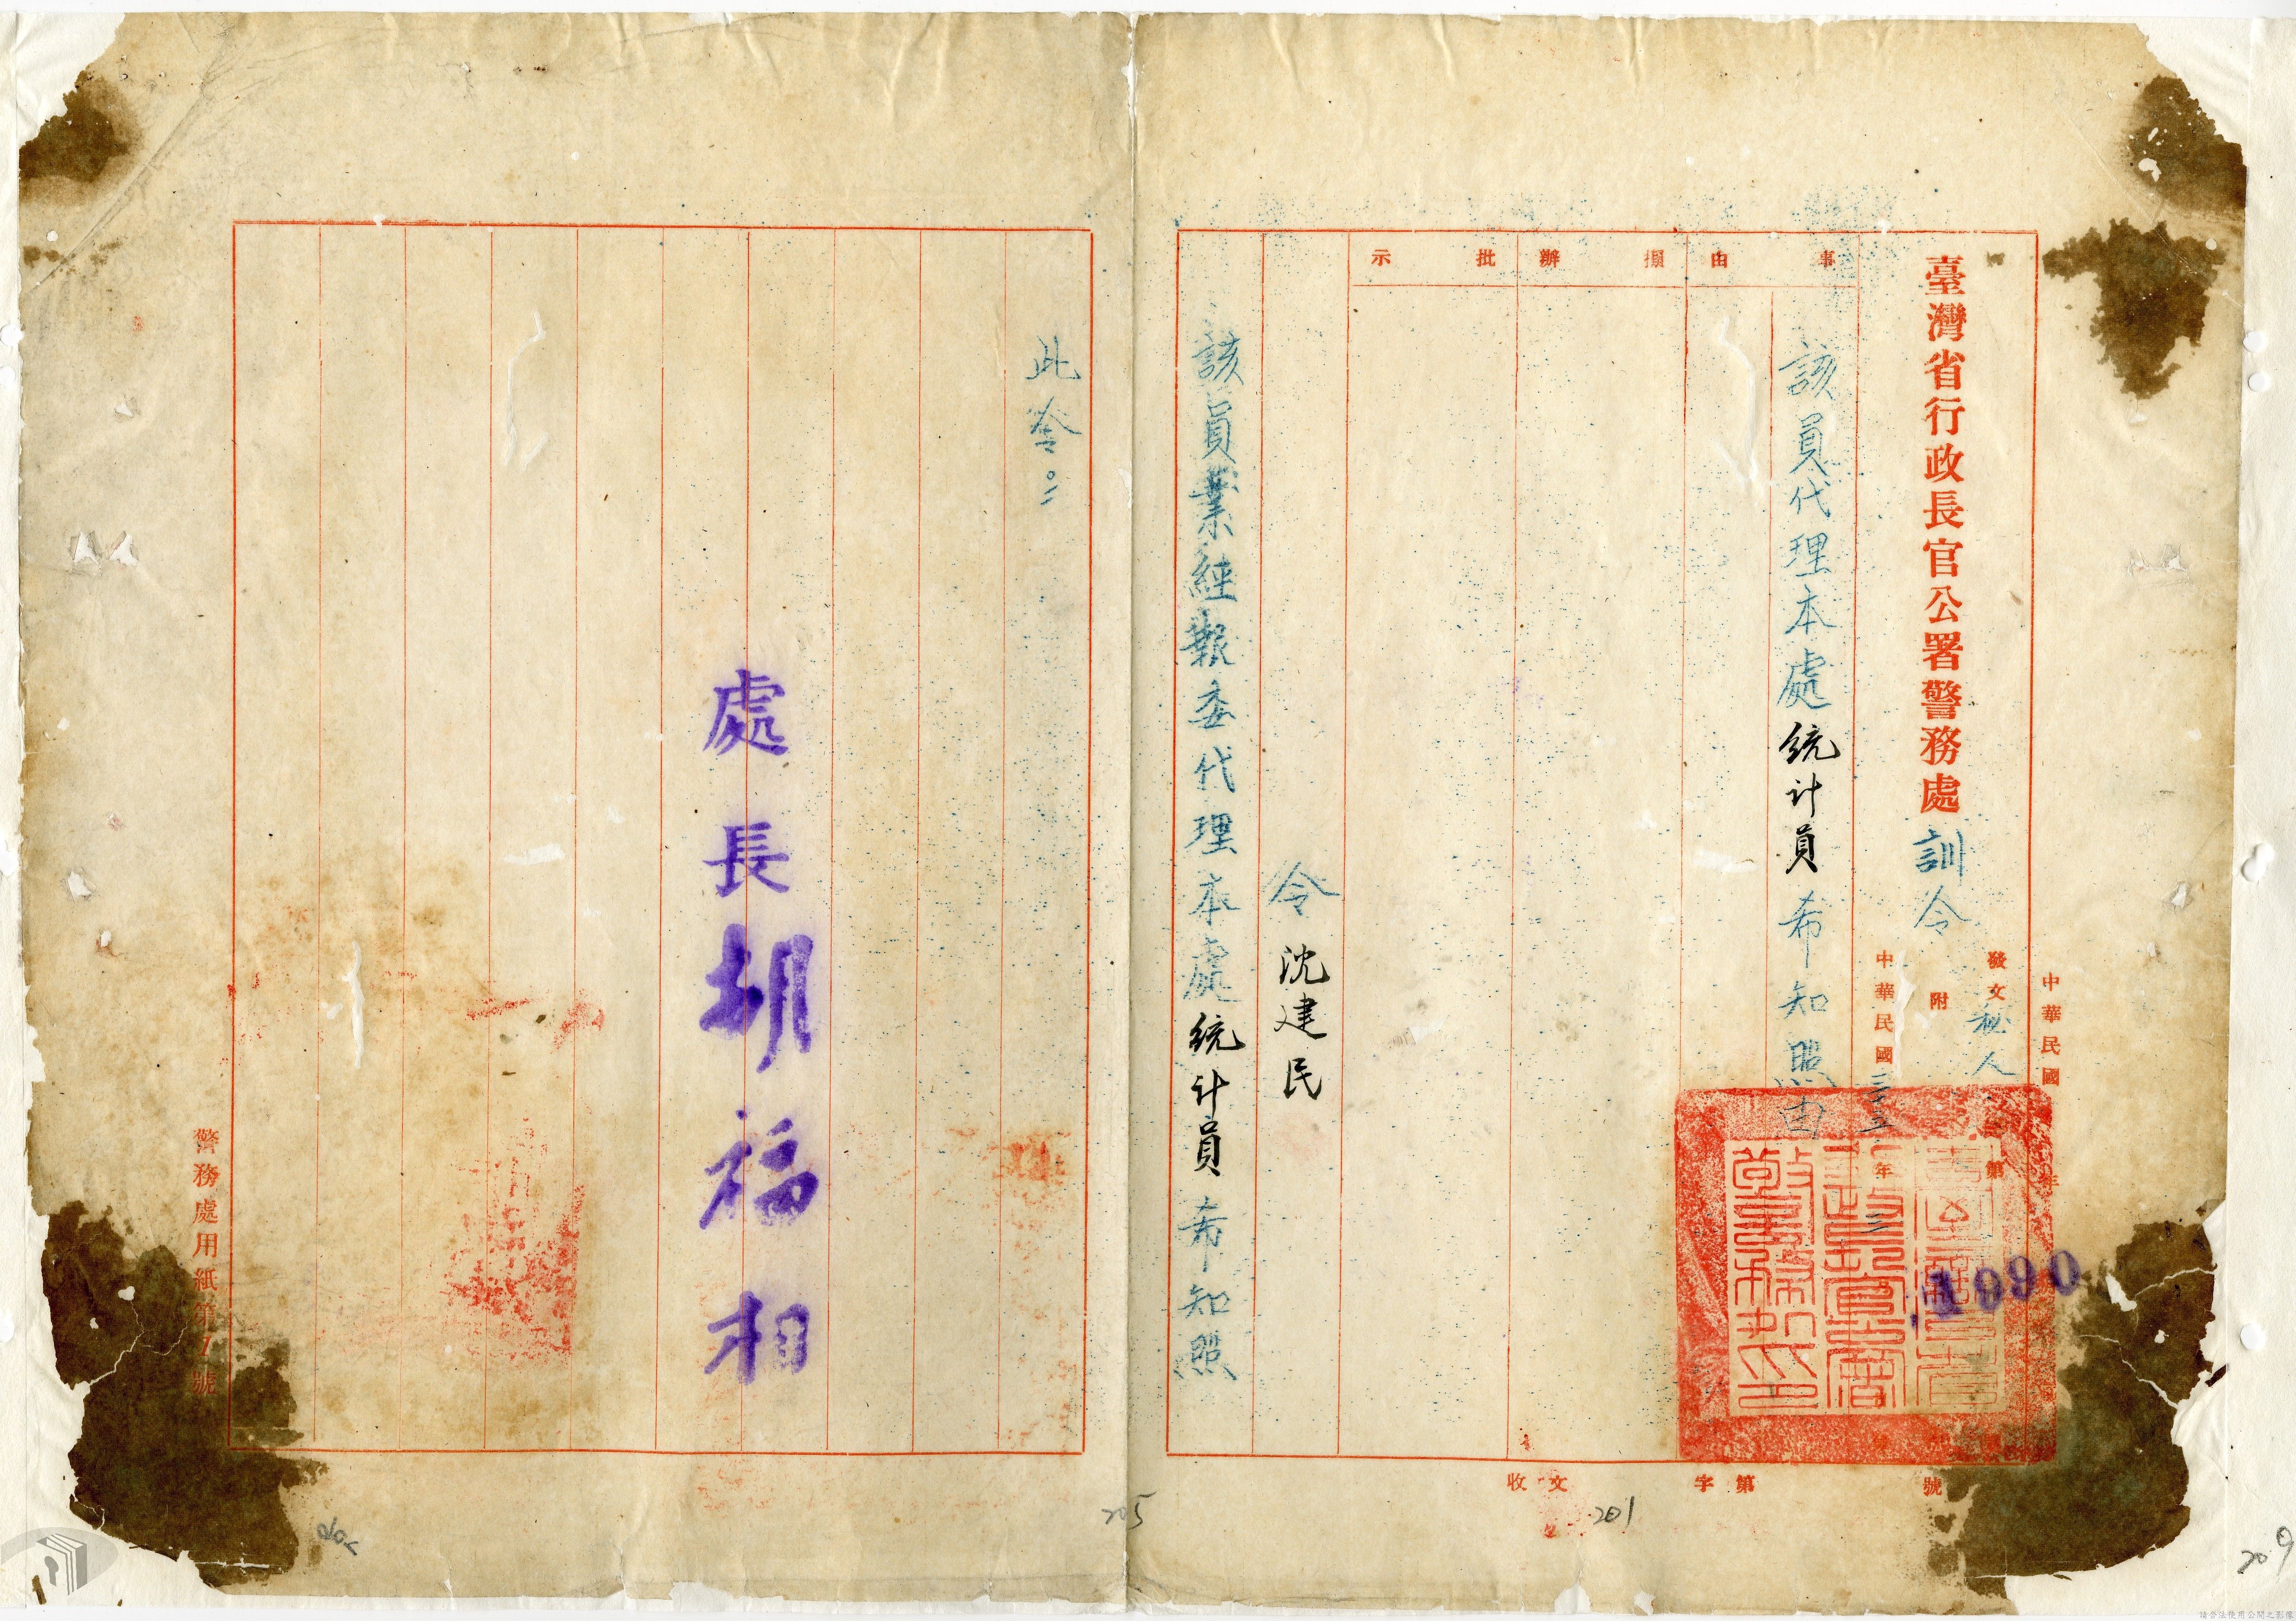 中華民國 年
發文 秘人 第 號
1990
臺灣省行政長官公署警務處訓令
附
中華民國三十五年三
事由
該員代理本處統計員希知照由
擬辦
批示
令 沈建民
該員業經報委代理本處統計員希知照
此令
處長胡福相
警務處用紙第1號
收文 字第 號
201
205
209